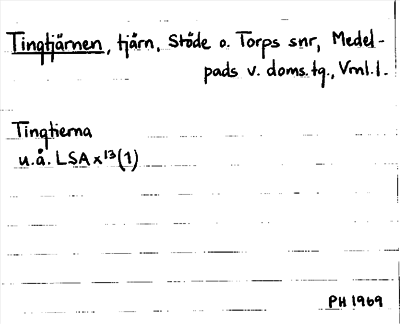 Tingtjärnen, tjärn, Stöde o. Torps snr, Medel-
pads v. doms.tg., Vrnl.l.
Tingtierna
u.å. LSA x¹³(1)
PH 1969